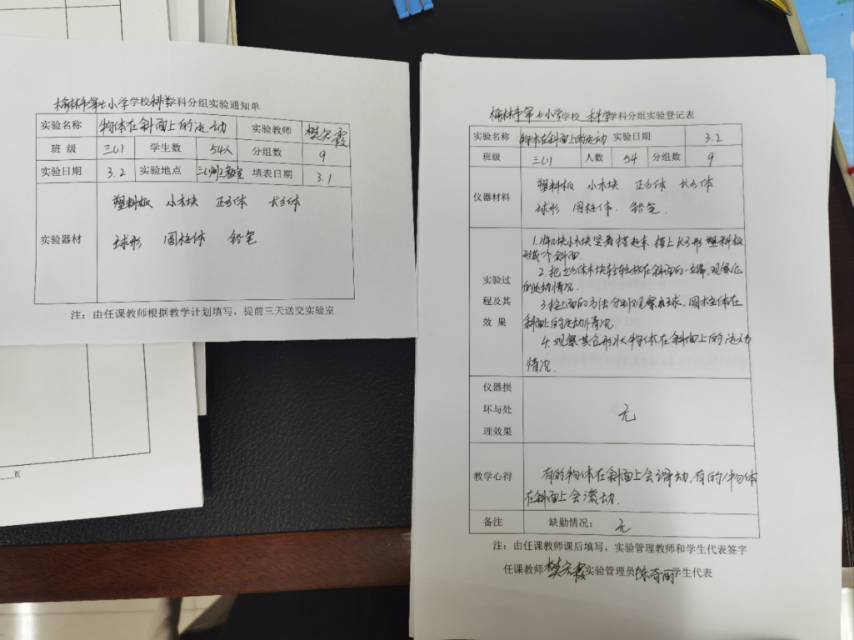 榆林市第七小学学校科学科分组实验通知单
实验名称 物体在斜面上的运动 实验教师
班级 三(1) 学生数 54人 分组数 9
实验日期 3.2 实验地点 三(1)教室 填表日期 3.1
实验器材
塑料板 小木块 正方体 长方体
球形 圆柱体 铅笔
注：由任课教师根据教学计划填写，提前三天送交实验室
页
榆林市第七小学学校 科学学科分组实验登记表
实验名称 物体在斜面上的运动 实验日期 3.2
班级 三(1) 人数 54 分组数 9
仪器材料
塑料板 小木块 正方体 长方体
球形 圆柱体 铅笔
实验过程及其效果
1.将几块小木块竖着搭起来,搭上长方形塑料板
形成个斜面
2.把正方体木块轻轻放在斜面的一端,观察它
的运动情况.
3.按上面的方法分别观察球、圆木立体在
斜面上的运动情况.
4.观察其它形状物体在斜面上的运动
情况.
仪器损坏与处理效果
无
教学心得
有的物体在斜面上会滑动,有的物体
在斜面上会滚动.
备注 缺勤情况： 无
注：由任课教师课后填写，实验管理教师和学生代表签字
任课教师 实验管理员 学生代表